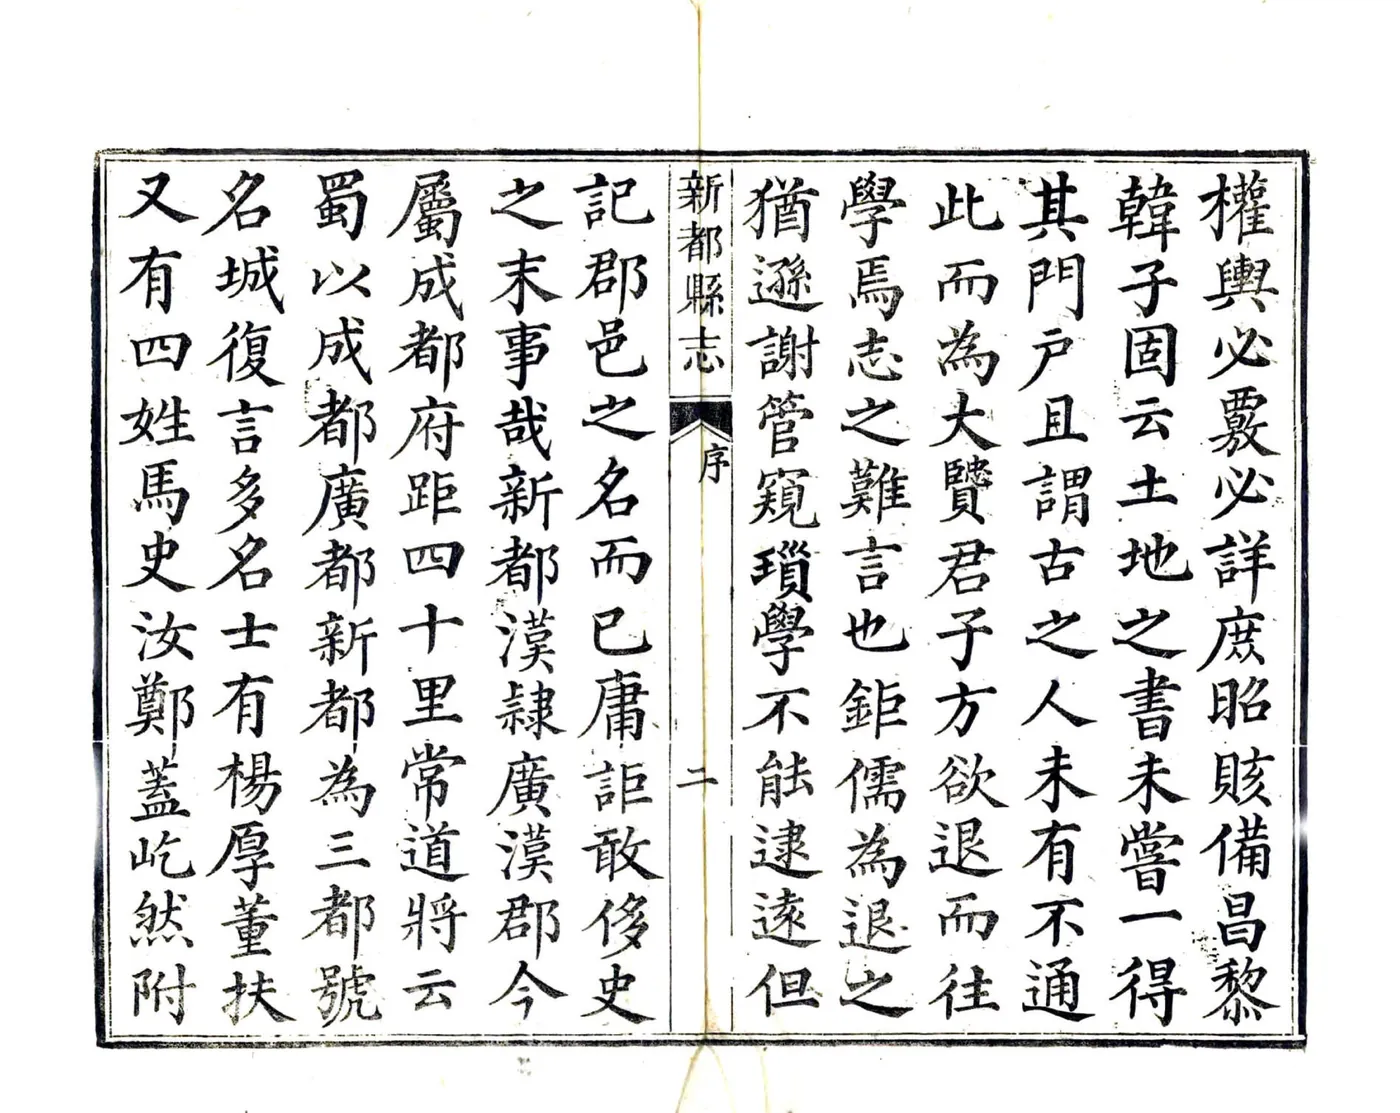 權輿必覈必詳庶昭賅備昌黎
韓子固云土地之書未嘗一得
其門戶且謂古之人未有不通
此而為大賢君子方欲退而往
學焉志之難言也鉅儒為退之
猶遜謝管窺瑣學不能逮遠但
新都縣志
序
二
記郡邑之名而已庸詎敢侈史
之末事哉新都漢隸廣漢郡今
屬成都府距四十里常道將云
蜀以成都廣都新都為三都號
名城復言多名士有楊厚董扶
又有四姓馬史汝鄭蓋屹然附